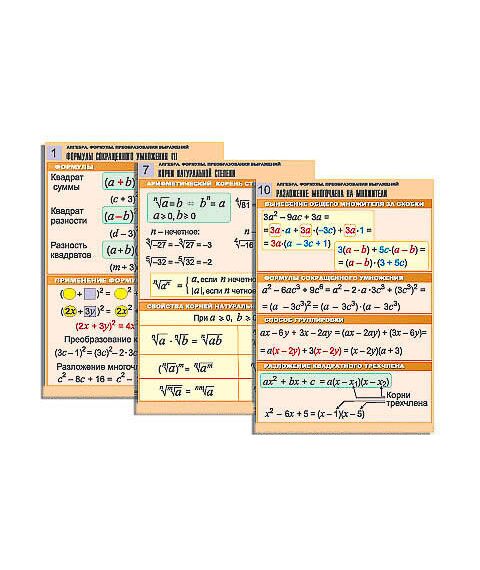 1
АЛГЕБРА. ФОРМУЛЫ. ПРЕОБРАЗОВАНИЯ ВЫРАЖЕНИЙ
ФОРМУЛЫ СОКРАЩЕННОГО УМНОЖЕНИЯ (1)
ФОРМУЛЫ
Квадрат
суммы
(a+b)
(c + 3)
Квадрат
разности
(a−b)
(d − 3)
Разность
квадратов
(a+b)
(m + 3)
ПРИМЕНЕНИЕ ФОРМУ
( + )² = ²
(2x + 3y)² =
(2x + 3y)² = 4x
Преобразование к
(3c − 1)² = (3c)² − 2·3c
Разложение многоч
c² − 8c + 16 = c² −
7
АЛГЕБРА. ФОРМУЛЫ. ПРЕОБРАЗОВАНИЯ ВЫРАЖЕНИЙ
КОРНИ НАТУРАЛЬНОЙ СТЕПЕНИ
АРИФМЕТИЧЕСКИЙ КОРЕНЬ СТ
ⁿ√a = b ⇔ bⁿ = a
a ≥ 0, b ≥ 0
⁴√81
n – нечетное:
³√−27 = −³√27 = −3
⁵√−32 = −⁵√32 = −2
⁴√−16
ⁿ√aⁿ = { a, если n нечетно
|a|, если n четное
СВОЙСТВА КОРНЕЙ НАТУРАЛЬ
При a ≥ 0, b ≥
ⁿ√a · ⁿ√b = ⁿ√ab
(ⁿ√a)ᵐ = ⁿ√aᵐ
ⁿ√ᵐ√a = ⁿᵐ√a
10
АЛГЕБРА. ФОРМУЛЫ. ПРЕОБРАЗОВАНИЯ ВЫРАЖЕНИЙ
РАЗЛОЖЕНИЕ МНОГОЧЛЕНА НА МНОЖИТЕЛИ
ВЫНЕСЕНИЕ ОБЩЕГО МНОЖИТЕЛЯ ЗА СКОБКИ
3a² − 9ac + 3a =
= 3a·a + 3a·(−3c) + 3a·1 =
= 3a·(a − 3c + 1)
3(a−b) + 5c·(a−b) =
= (a−b)·(3 + 5c)
ФОРМУЛЫ СОКРАЩЕННОГО УМНОЖЕНИЯ
a² − 6ac³ + 9c⁶ = a² − 2·a·3c³ + (3c³)² =
= (a − 3c³)² = (a − 3c³)·(a − 3c³)
СПОСОБ ГРУППИРОВКИ
ax − 6y + 3x − 2ay = (ax − 2ay) + (3x − 6y) =
= a(x − 2y) + 3(x − 2y) = (x − 2y)(a + 3)
РАЗЛОЖЕНИЕ КВАДРАТНОГО ТРЕХЧЛЕНА
ax² + bx + c = a(x − x₁)(x − x₂)
Корни
трехчлена
x² − 6x + 5 = (x − 1)(x − 5)